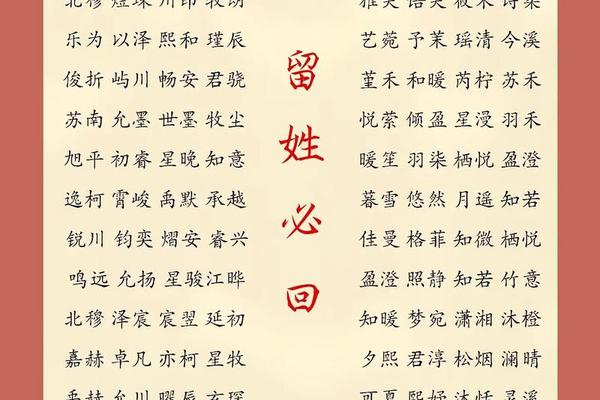 北穆 煜珠 川印 牧朗
乐为 以泽 熙和 瑾辰
俊折 屿川 畅安 君骁
苏南 允墨 世墨 牧尘
旭平 初睿 星晚 知意
逸柯 霄峻 禹默 承越
锐川 钧奕 熠安 睿兴
鸣远 允扬 星骏 江晔
北穆 泽宸 宸翌 延初
嘉赫 卓凡 亦柯 星牧
禹赫 允川 曜辰 玄琛
留姓必回
艺菀 予茉 瑶清 今溪
堇禾 和暖 芮柠 苏禾
悦萦 倾盈 星漫 羽禾
暖笙 羽柒 栖悦 盈澄
暮雪 悠然 月遥 知若
佳曼 格菲 知微 栖悦
盈澄 照静 知若 竹意
知暖 梦宛 潇湘 沐橙
夕熙 君淳 松烟 澜晴
可夏 熙妤 沐恬 灵溪